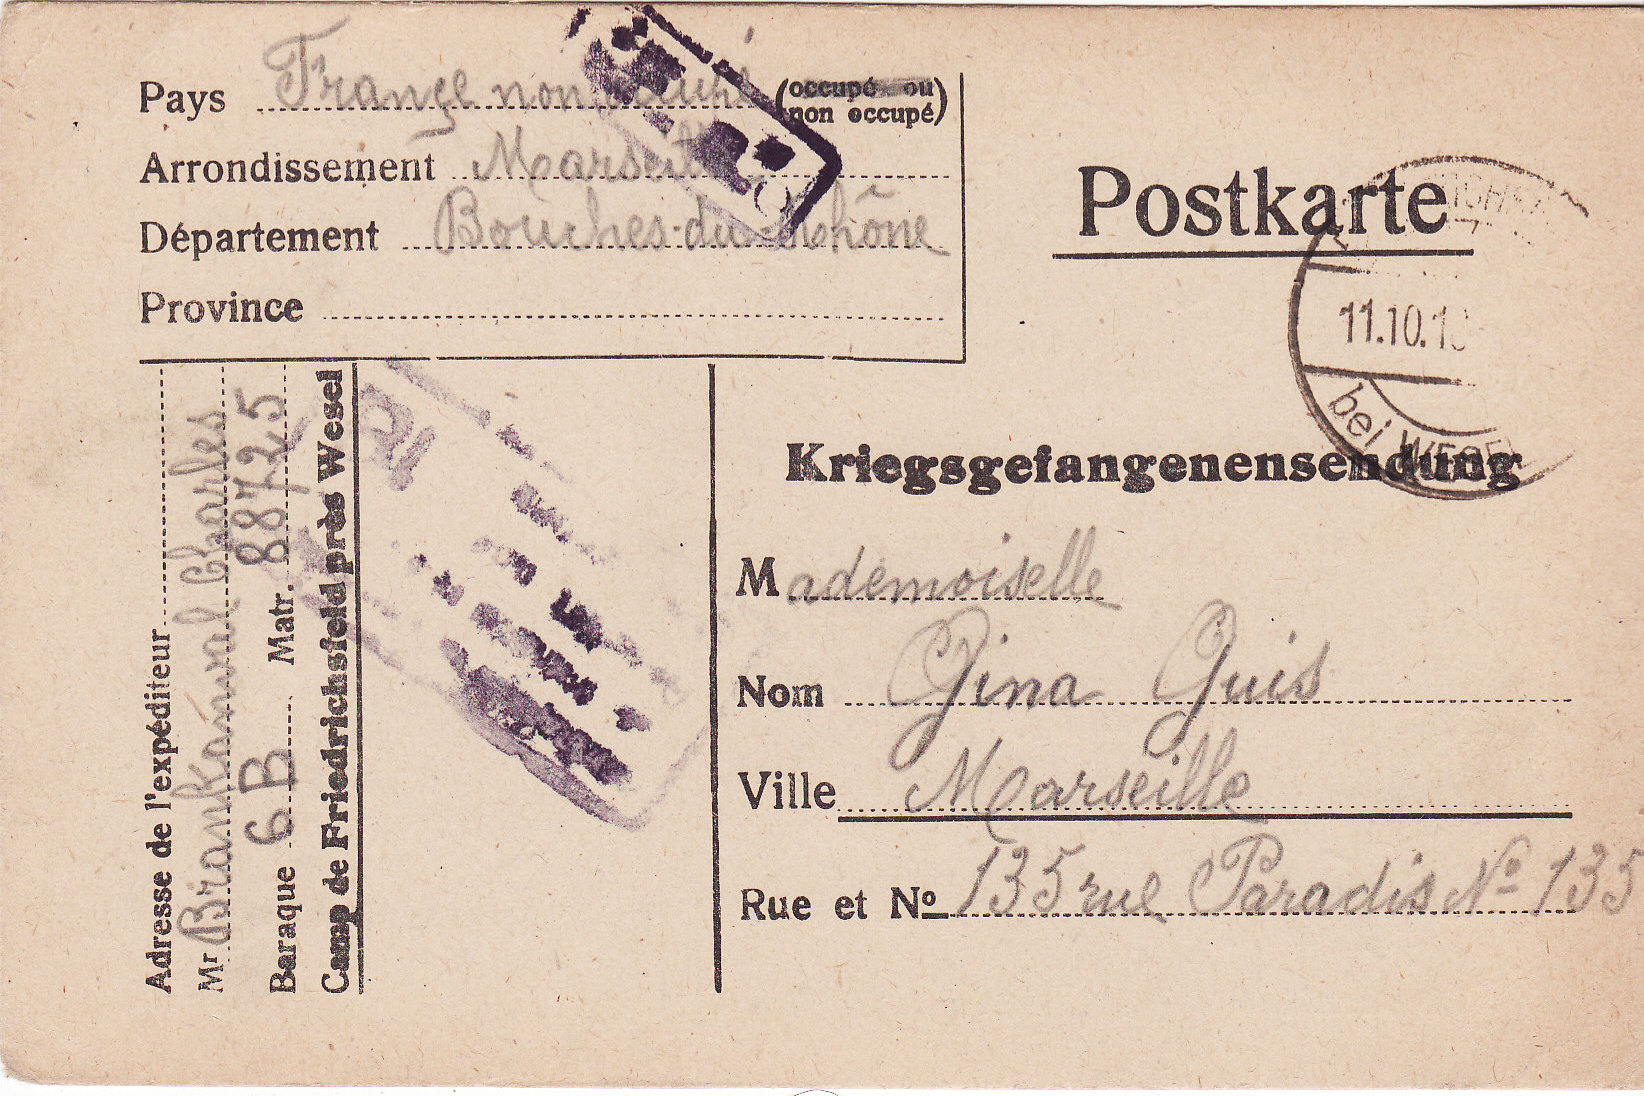 Pays France non occupé (occupé ou non occupé)
Arrondissement Marseille
Département Bouches-du-Rhône
Province
Postkarte
11.10.1
bei WESEL
Kriegsgefangenensendung
Mademoiselle
Nom Gina Guis
Ville Marseille
Rue et No 135 rue Paradis No 135
Adresse de l'expéditeur
Mr Charles
Baraque 6 B Matr. 88725
Camp de Friedrichsfeld près Wesel